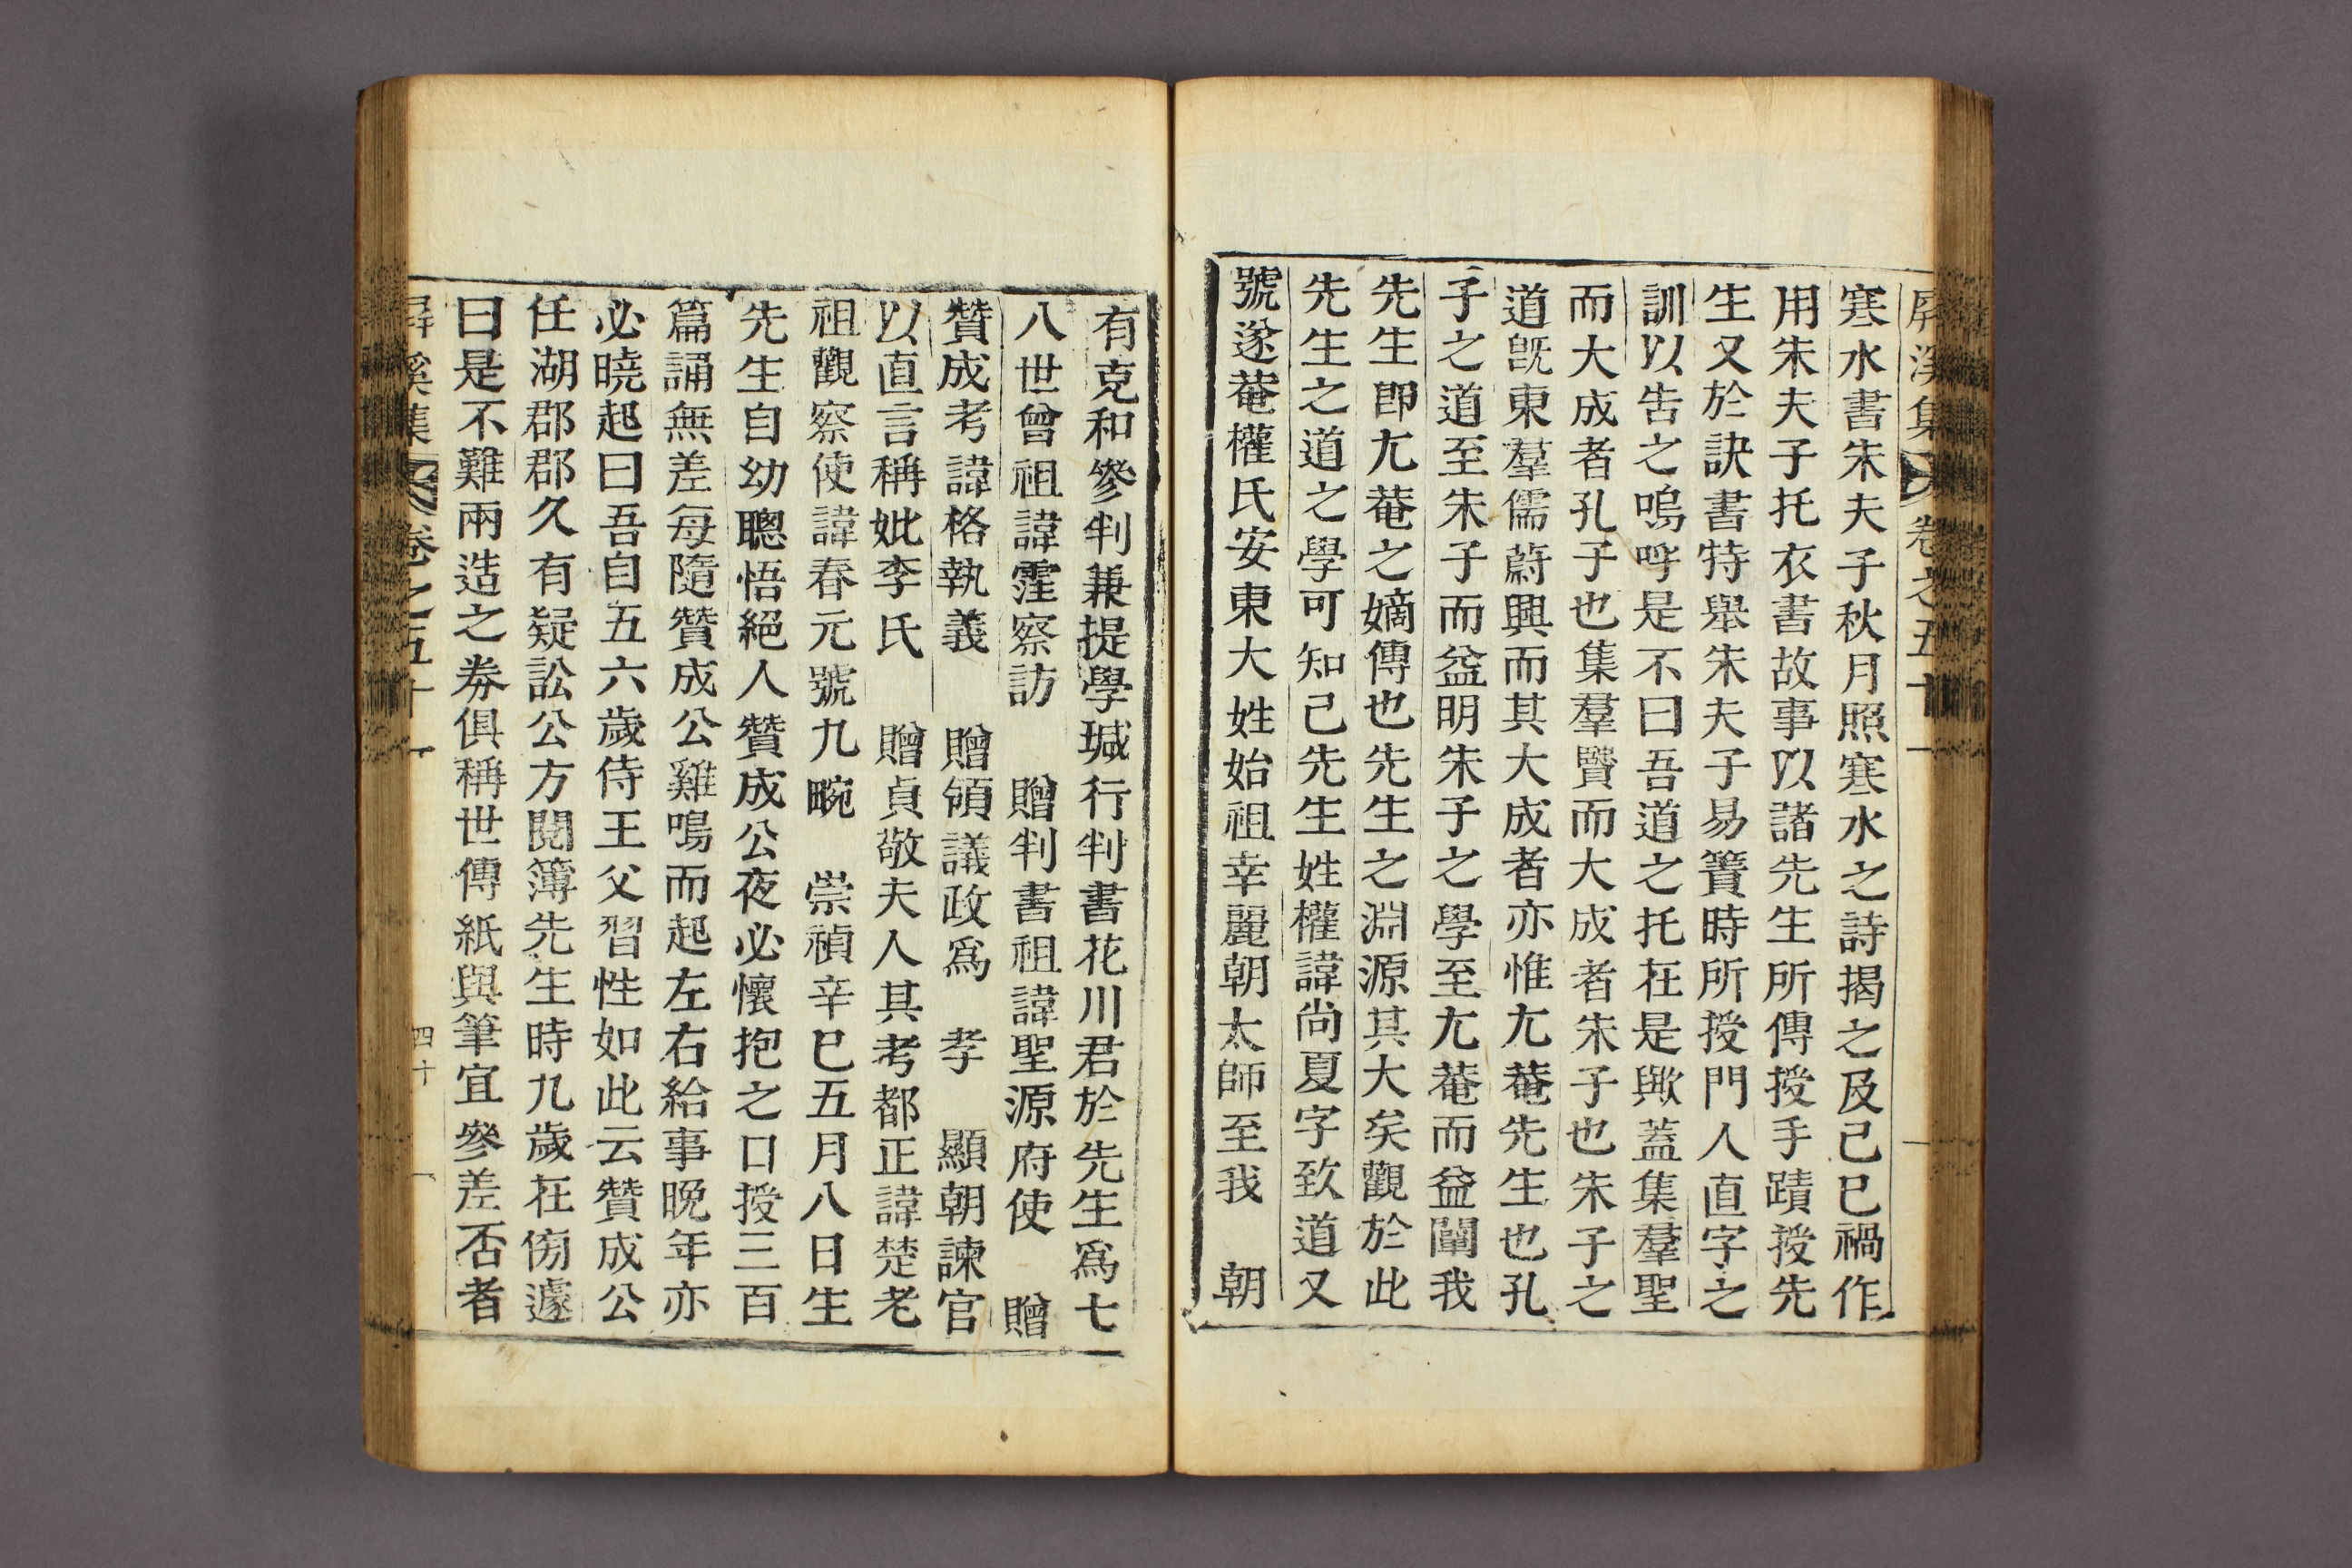 屏溪集 卷之五十一
寒水書朱夫子秋月照寒水之詩揭之及己巳禍作
用朱夫子托衣書故事以諸先生所傳授手蹟授先
生又於訣書特舉朱夫子易簀時所授門人直字之
訓以告之嗚呼是不曰吾道之托在是歟蓋集羣聖
而大成者孔子也集羣賢而大成者朱子也朱子之
道旣東羣儒蔚興而其大成者亦惟尤菴先生也孔
子之道至朱子而益明朱子之學至尤菴而益闡我
先生卽尤菴之嫡傳也先生之淵源其大矣觀於此
先生之道之學可知已先生姓權諱尚夏字致道又
號遂菴權氏安東大姓始祖幸麗朝太師至我 朝
有克和參判兼提學瑊行判書花川君於先生爲七
八世曾祖諱霔察訪 贈判書祖諱聖源府使 贈
贊成考諱格執義 贈領議政爲 孝 顯朝諫官
以直言稱妣李氏 贈貞敬夫人其考都正諱楚老
祖觀察使諱春元號九畹 崇禎辛巳五月八日生
先生自幼聰悟絕人贊成公夜必懷抱之口授三百
篇誦無差每隨贊成公雞鳴而起左右給事晩年亦
必曉起曰吾自五六歲侍王父習性如此云贊成公
任湖郡郡久有疑訟公方閱簿先生時九歲在傍遽
曰是不難兩造之券俱稱世傳紙與筆宜參差否者
屏溪集 卷之五十一 四十一